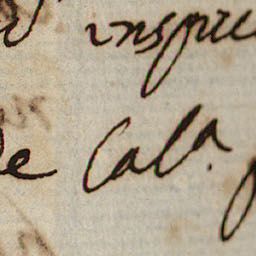 inspic
de Cal.ª